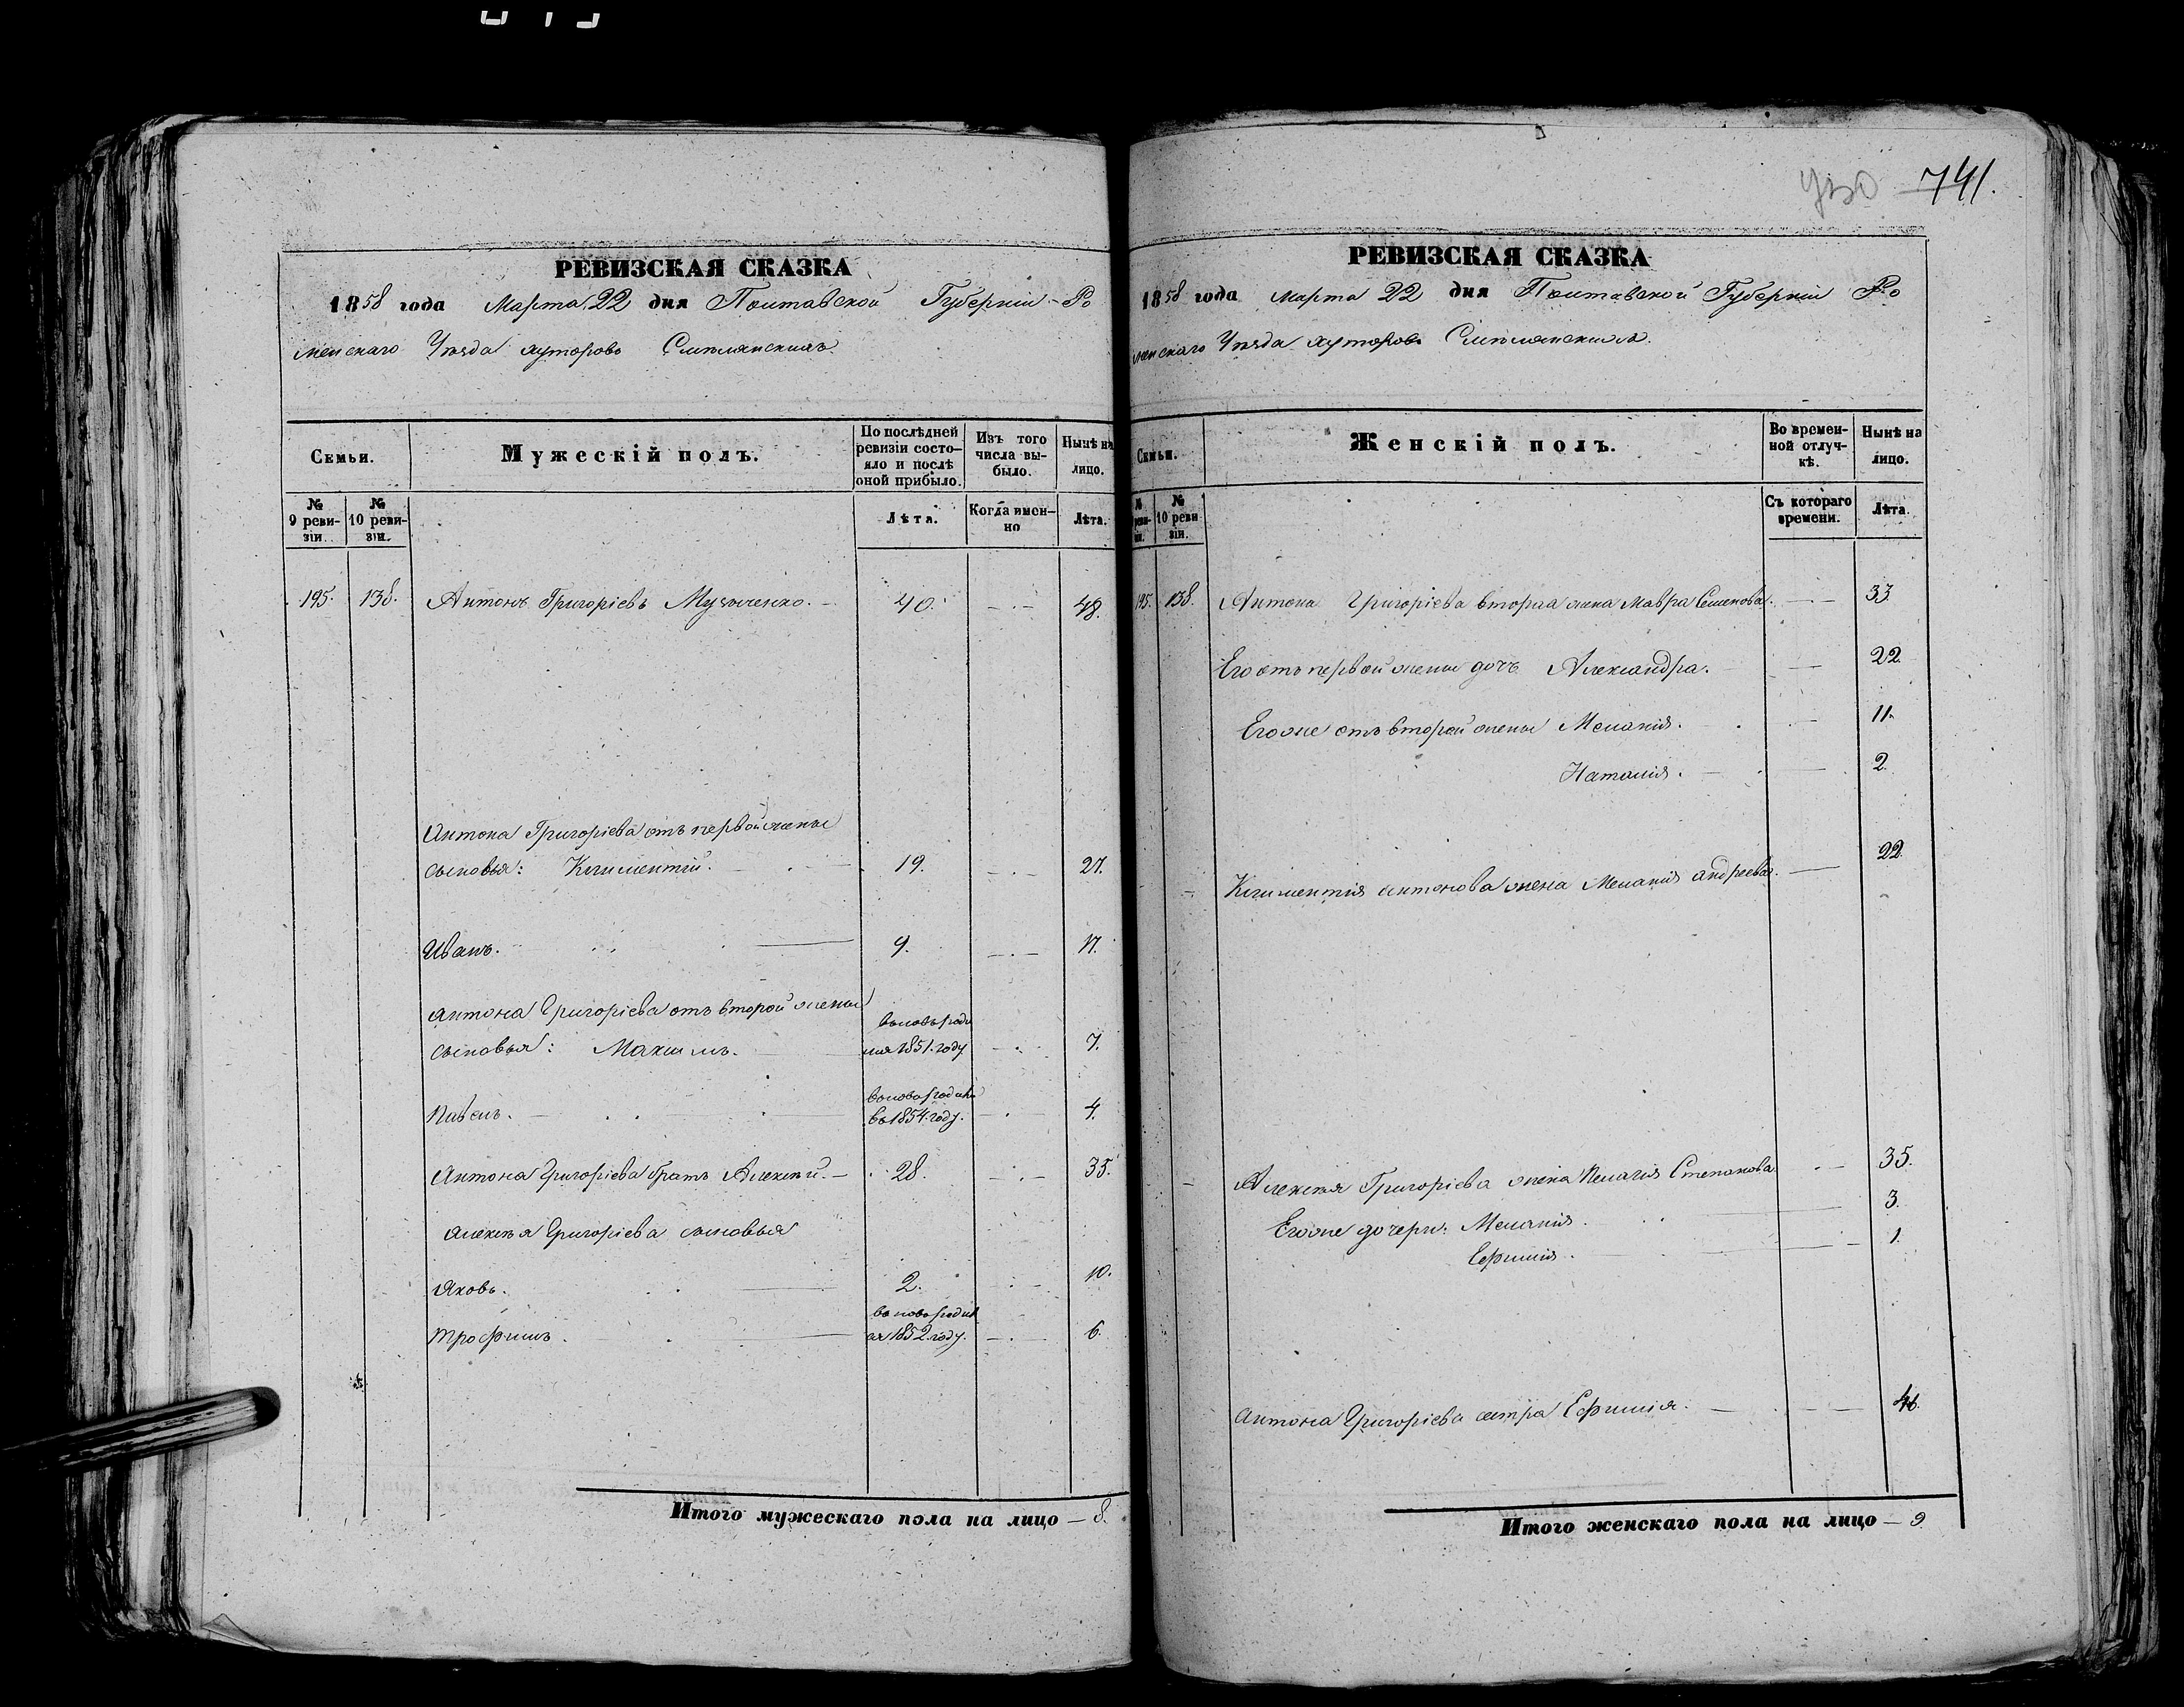 741.
РЕВИЗСКАЯ СКАЗКА
1858 года Марта 22 дня Полтавской Губерніи Ро
менскаго Уѣзда хуторовъ
Семьи.
Мужескій полъ.
По послѣдней ревизіи состо-яло и послѣ оной прибыло.
Изъ того числа вы-было.
Нынѣ на лицо.
№ 9 реви-зіи.
№ 10 реви-зіи.
Лѣта.
Когда имен-но
Лѣта.
195. 138. Антонъ Григоріевъ 40. 48.
Антона Григоріева отъ первой жены
сыновья: Климентій. 19. 27.
Иванъ. 9. 17.
Антона Григоріева отъ второй жены
сыновья: Максимъ. 1851. году 7.
Павелъ. въ 1854. году. 4.
Антона Григоріева братъ Алексѣй. 28. 35.
Алексѣя Григоріева сыновья
Яковъ. 2. 10.
Трофимъ. 1852. году. 6.
Итого мужескаго пола на лицо — 8.
РЕВИЗСКАЯ СКАЗКА
1858 года Марта 22 дня Полтавской Губерніи Ро
менскаго Уѣзда хуторовъ
Семьи.
Женскій полъ.
Во времен-ной отлуч-кѣ.
Нынѣ на лицо.
№ реви-зіи.
№ 10 реви зіи.
Съ котораго времени.
Лѣта.
195. 138. Антона Григоріева вторая жена Мавра Семенова. 33
Его отъ первой жены дочь Александра. 22.
Его же отъ второй жены Меланія. 11.
Наталія. 2.
Климентія Антонова жена Меланія Андреева. 22.
Алексѣя Григоріева жена Пелагія Степанова 35.
Его же дочери: Меланія. 3.
Ефимія. 1.
Антона Григоріева сестра Ефимія. 46.
Итого женскаго пола на лицо — 9